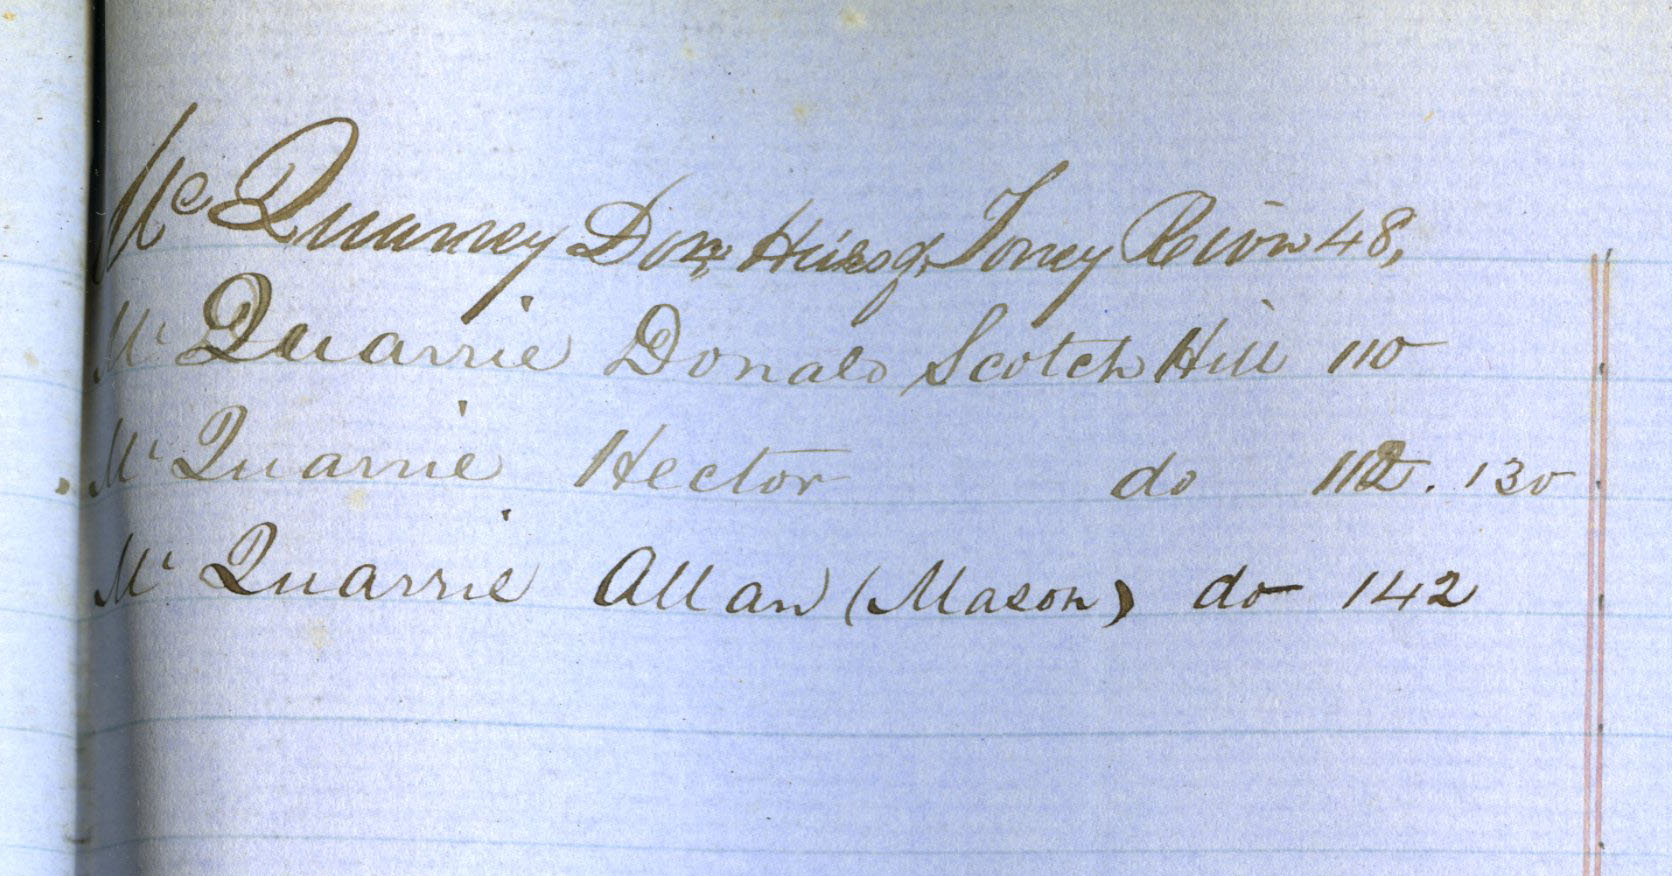 McQuarrey Don, Heirs of, Toney River 48,
Mc Quarrie Donald Scotch Hill 110
Mc Quarrie Hector do 112. 130
Mc Quarrie Allan (Mason) do 142